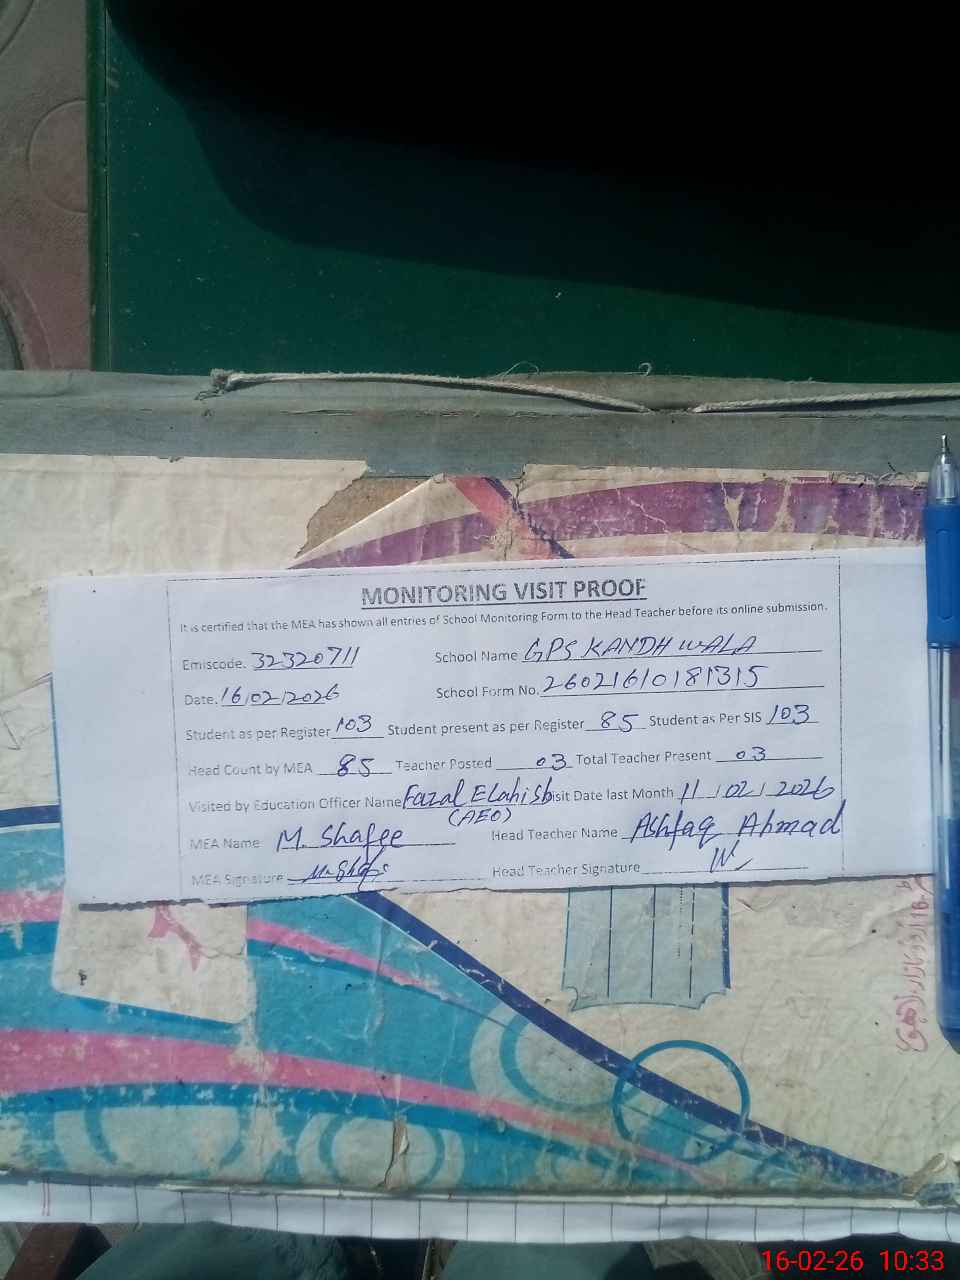 MONITORING VISIT PROOF
It is certified that the MEA has shown all entries of School Monitoring Form to the Head Teacher before its online submission.
Emiscode. 32320711 School Name GPS KANDH WALA
Date. 16/02/2026 School Form No. 26021610181315
Student as per Register 103 Student present as per Register 85 Student as Per SIS 103
Head Count by MEA 85 Teacher Posted 03 Total Teacher Present 03
Visited by Education Officer Name Fazal Elahi Sb isit Date last Month 11/02/2026
(AEO)
MEA Name M. Shafee Head Teacher Name Ashfaq Ahmad
MEA Signature Head Teacher Signature
16-02-26 10:33